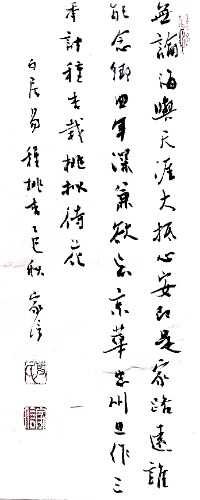 無論海與天涯大抵心安即是家路遠誰
能念鄉曲年深兼欲忘京華忠州且作三
年計種杏栽桃擬待花
白居易種桃杏乙巳秋家信